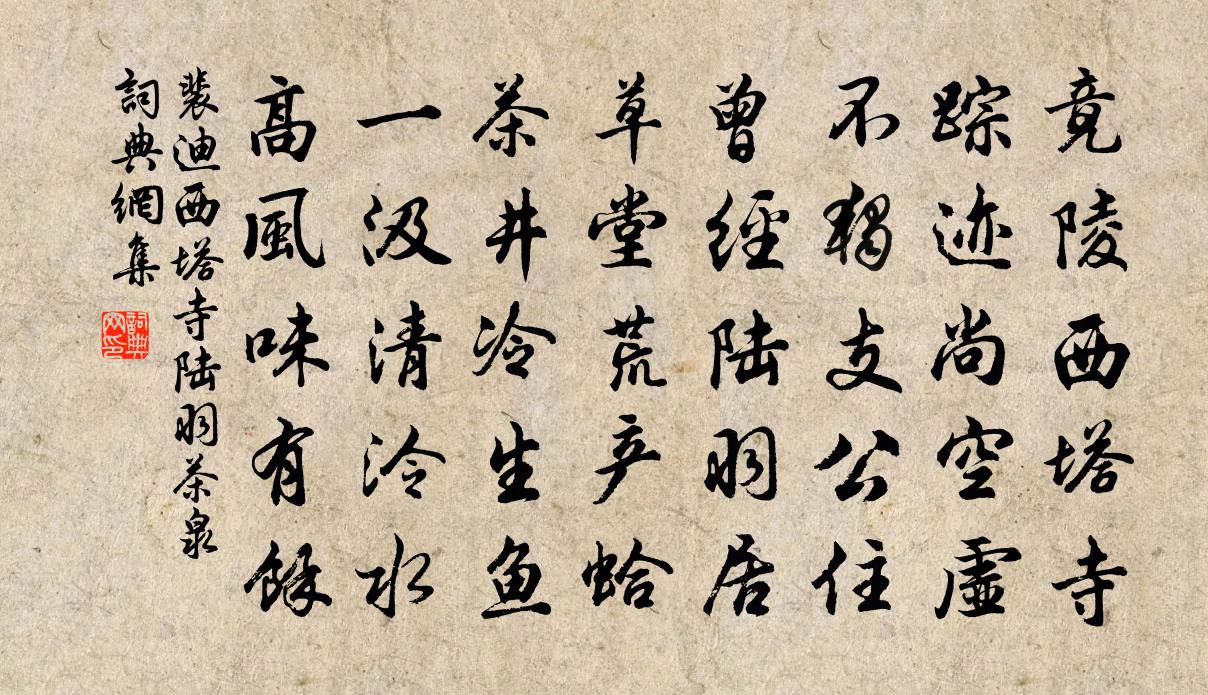 竟陵西塔寺
踪迹尚空虛
不独支公住
曾經陆羽居
草堂荒产蛤
茶井冷生鱼
一汲清泠水
高風味有餘
裴迪西塔寺陆羽茶泉
詞典網集
詞典网印